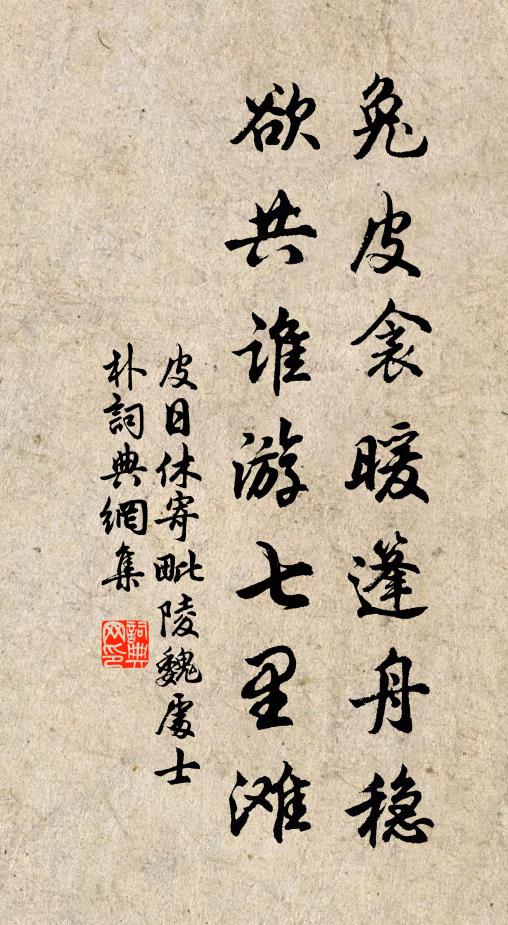 兔皮衾暖篷舟稳
欲共谁游七里滩
皮日休寄毗陵魏處士
朴詞典網集
詞典
网印